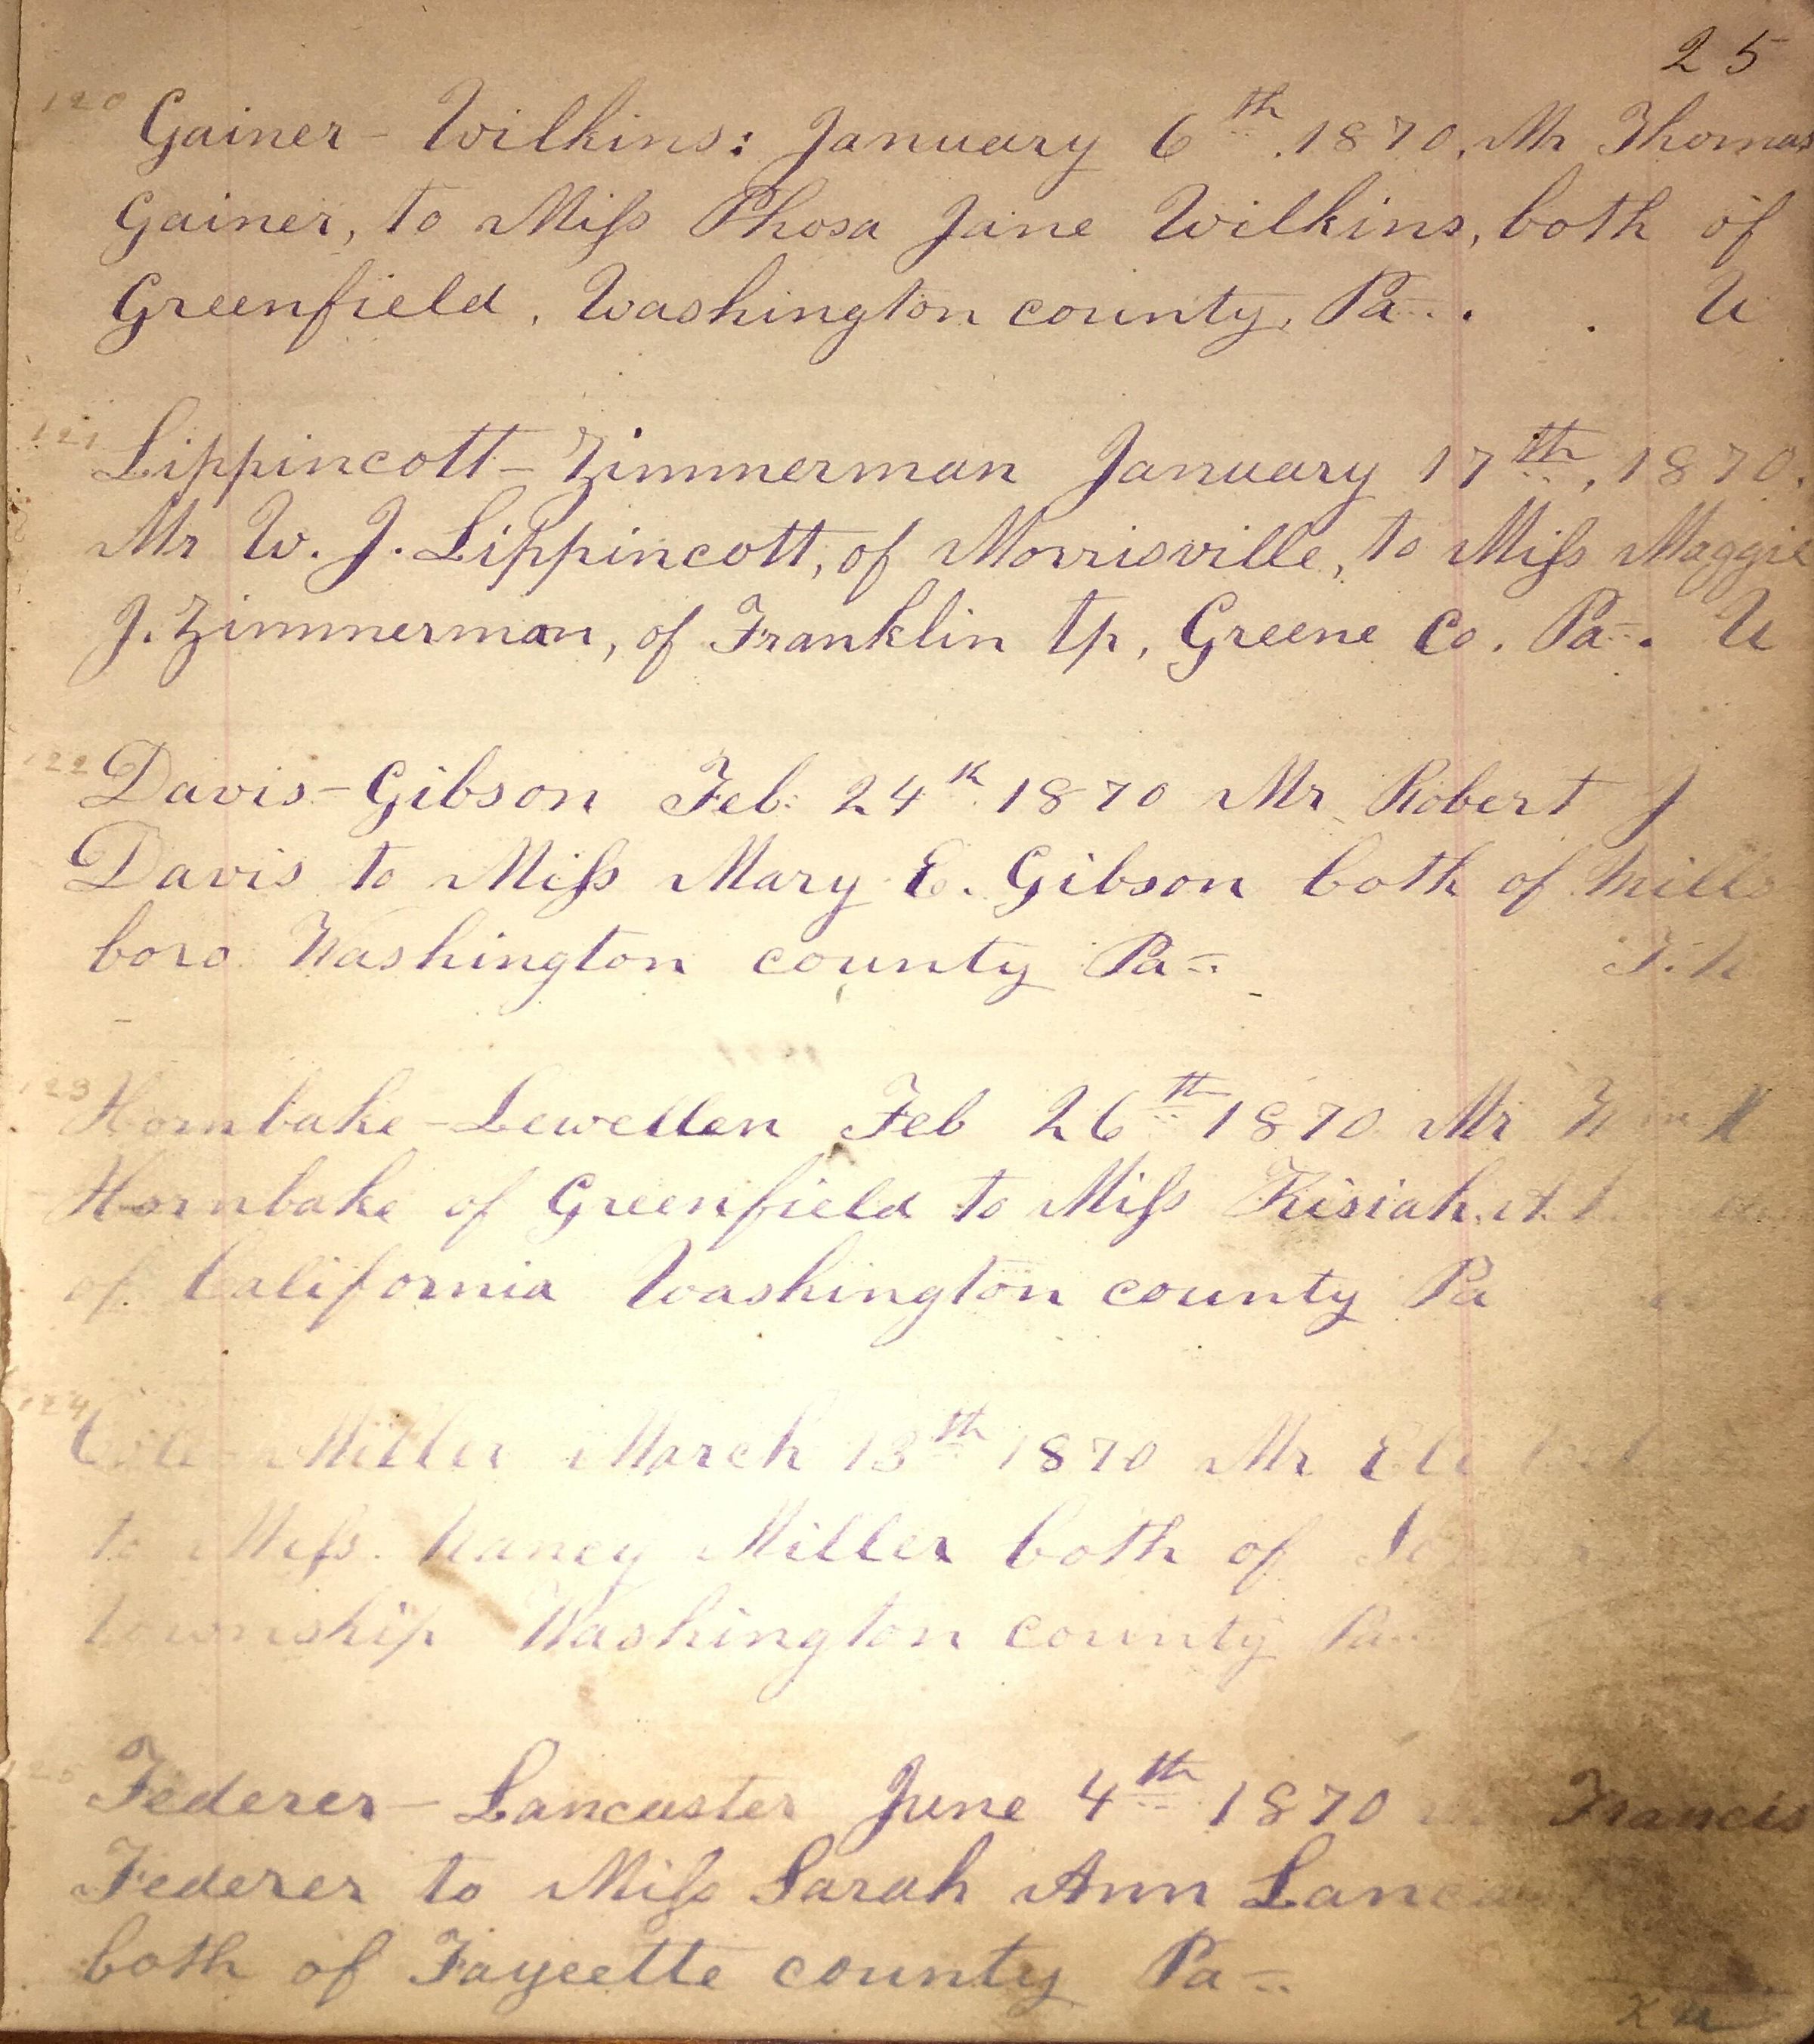 25
120 Gainer - Wilkins: January 6th. 1870. Mr Thomas
Gainer, to Miſs Phosa Jane Wilkins, both of
Greenfield, Washington county, Pa. . U
121 Lippincott - Zimmerman January 17th, 1870.
Mr W. J. Lippincott, of Morrisville, to Miſs Maggie
J. Zimmerman, of Franklin tp, Greene Co. Pa. U
122 Davis - Gibson Feb: 24th 1870 Mr Robert J
Davis to Miſs Mary E. Gibson both of Mills
boro Washington county Pa
123 Hornbake - Lewellen Feb 26th 1870 Mr Wm H
Hornbake of Greenfield to Miſs Kisiah A.
of California Washington county Pa
124 Miller March 13th 1870 Mr Eli
to Miſs Nancy Miller both of
township Washington county Pa
Federer - Lancaster June 4th 1870 Francis
Federer to Miſs Sarah Ann
both of Fayeette county Pa